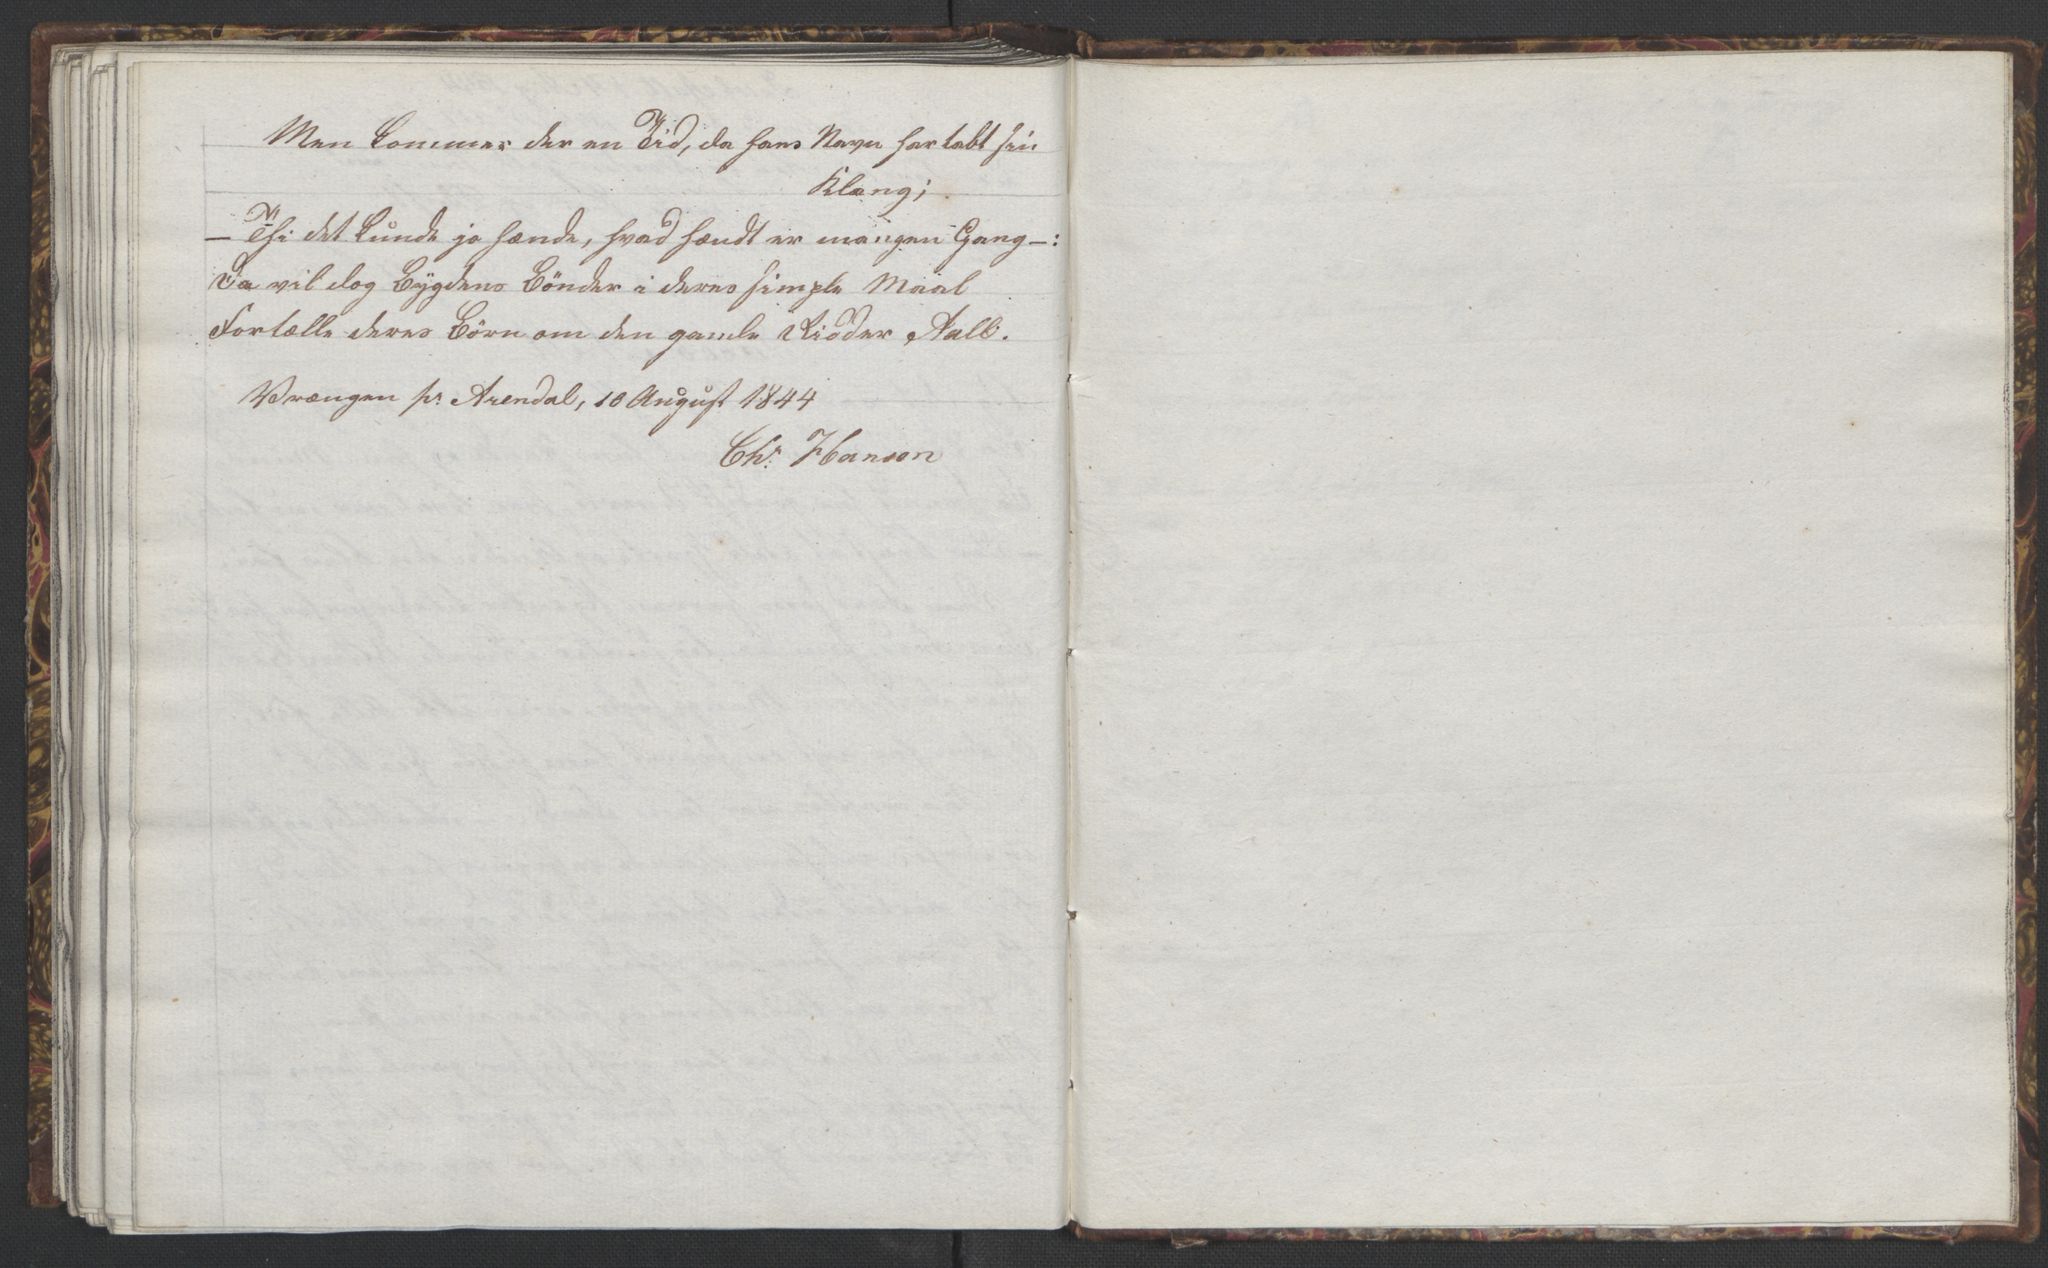 Men kommer der en Tid, da hans Navn har tabt sin
Klang;
– Thi det kunde jo hænde, hvad hændt er mangen Gang –:
Da vil dog Bygdens Bönder i deres simple Maal
Fortælle deres Börn om den gamle Ridder Aall.
Vrængen pr Arendal, 10 August 1844
Chr. Hanson